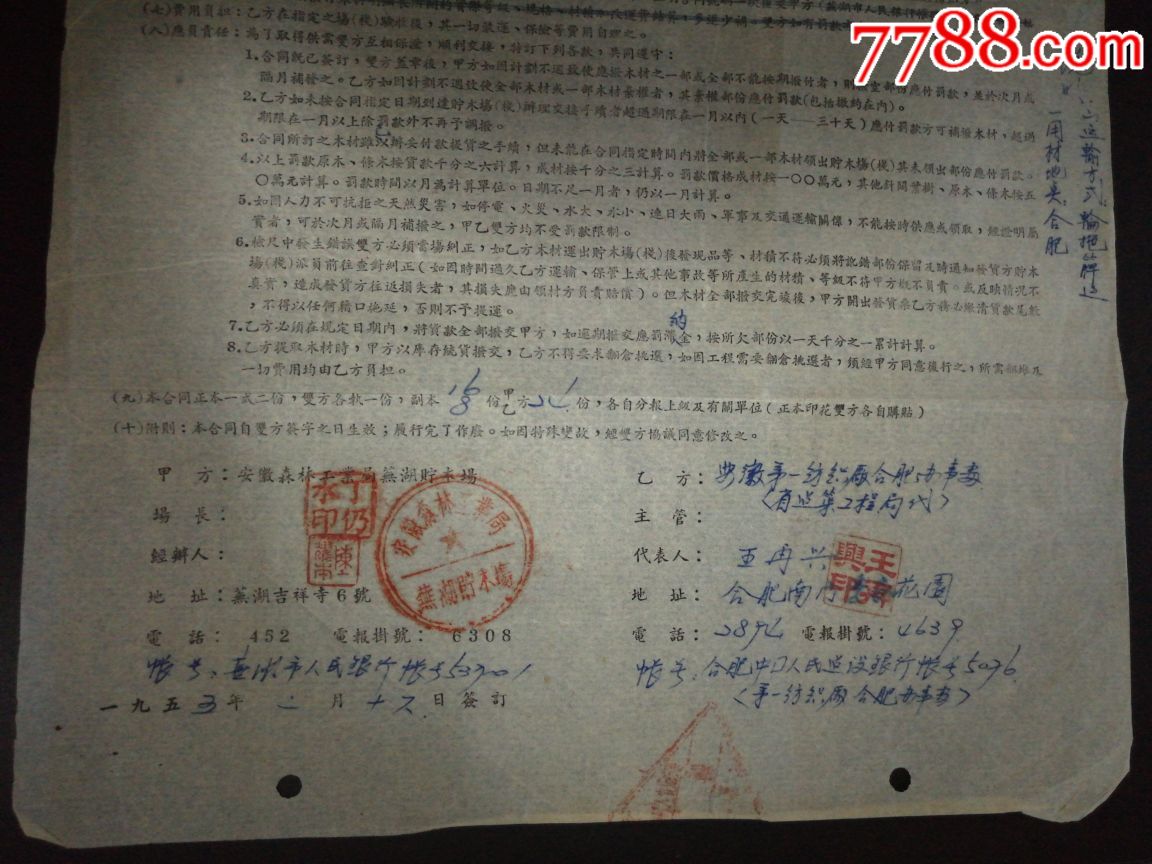 7788.com
(七)費用負担:乙方在指定之場(棧)驗收後,其一切裝運、保險等費用自理之。
(八)應負責任:為了取得供需雙方互相保證,順利交接,特訂下列各款,共同遵守:
1.合同既已簽訂,雙方蓋章後,甲方如因計劃不週致使應撥木材之一部或全部不能按期撥付者,
隔月補發之。乙方如因計劃不週致使全部木材或一部木材棄權者,其棄權部份應付罰款(包括撤約在內)。
2.乙方如未按合同指定日期到達貯木場(棧)辦理交接手續者超過期限在一月以內(一天——三十天)應付罰款方可補撥木材,超過
期限在一月以上除罰款外不再予調撥。
3.合同所訂之木材雖已辦妥付款提貨之手續,但未能在合同指定時間內將全部或一部木材領出貯木場(棧)其未領出部份應付罰款。
4.以上罰款原木、條木按貨款千分之六計算,成材按千分之三計算。罰款價格成材按一〇〇萬元,其他針闊葉樹、原木、條木按五
〇萬元計算。罰款時間以月為計算單位。日期不足一月者,仍以一月計算。
5.如因人力不可抗拒之天然災害,如停電、火災、水大、水小、連日大雨、軍事及交通運輸關係,不能按時供應或領取,經證明屬
實者,可於次月或隔月補撥之,甲乙雙方均不受罰款限制。
6.檢尺中發生錯誤雙方必須當場糾正,如乙方木材運出貯木場(棧)後發現品等、材積不符必須將訛錯部份保留及時通知發貨方貯木
場(棧)派員前往查對糾正(如因時間過久乙方運輸、保管上或其他事故等所產生的材積、等級不符甲方概不負責。或反映情況不
真實,造成發貨方往返損失者,其損失應由領材方負責賠償)。但木材全部撥交完竣後,甲方開出發貨票乙方務必賬清貨款尾數
,不得以任何藉口拖延,否則不予提運。
7.乙方必須在規定日期內,將貨款全部撥交甲方,如逾期撥交應罰滯約金,按所欠部份以一天千分之一累計計算。
8.乙方提取木材時,甲方以庫存統貨撥交,乙方不得要求翻倉挑選,如因工程需要翻倉挑選者,須經甲方同意後行之,所需翻堆及
一切費用均由乙方負担。
(九)本合同正本一式二份,雙方各執一份,副本 份甲乙方 份,各自分報上級及有關單位(正本印花雙方各自購貼)
(十)附則:本合同自雙方簽字之日生效;履行完了作廢。如因特殊變故,經雙方協議同意修改之。
甲 方:安徽森林工業局蕪湖貯木場
場 長:
丁仍水印
經辦人:
安徽森林工業局
蕪湖貯木場
地 址:蕪湖吉祥寺6號
電 話: 452 電報掛號: 6308
帐号:蕪湖市人民銀行帐号537001
一九五五年 二 月 十六 日簽訂
乙 方:安徽第一紡织厰合肥办事処
(省建築工程局代)
主 管:
代表人: 王再兴
王再興印
地 址: 合肥南門 花園
電 話: 2894 電報掛號: 4639
帐号:合肥中国人民建设銀行帐号5076
(第一紡织厰合肥办事処)
運輸方式:輪拖
用材地点:合肥